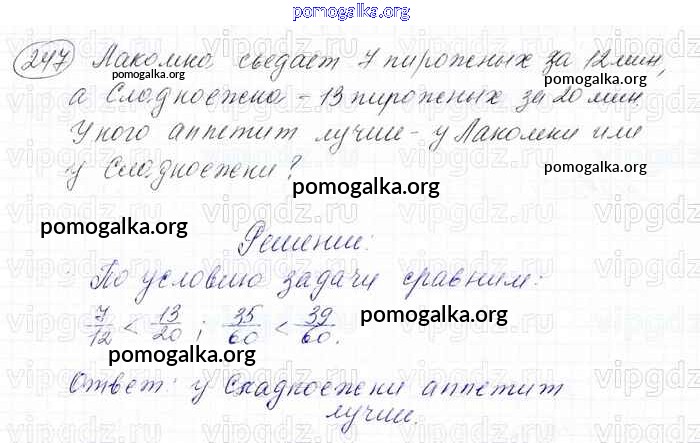 pomogalka.org
247 Лакомка съедает 7 пирожных за 12 мин,
pomogalka.org pomogalka.org
а Сладкоежка - 13 пирожных за 20 мин.
У кого аппетит лучше - у Лакомки или
у Сладкоежки?
pomogalka.org
pomogalka.org
pomogalka.org
Решение:
По условию задачи сравним:
7/12 < 13/20; 35/60 < 39/60.
pomogalka.org
pomogalka.org
Ответ: у Сладкоежки аппетит
лучше.
pomogalka.org
vipgdz.ru